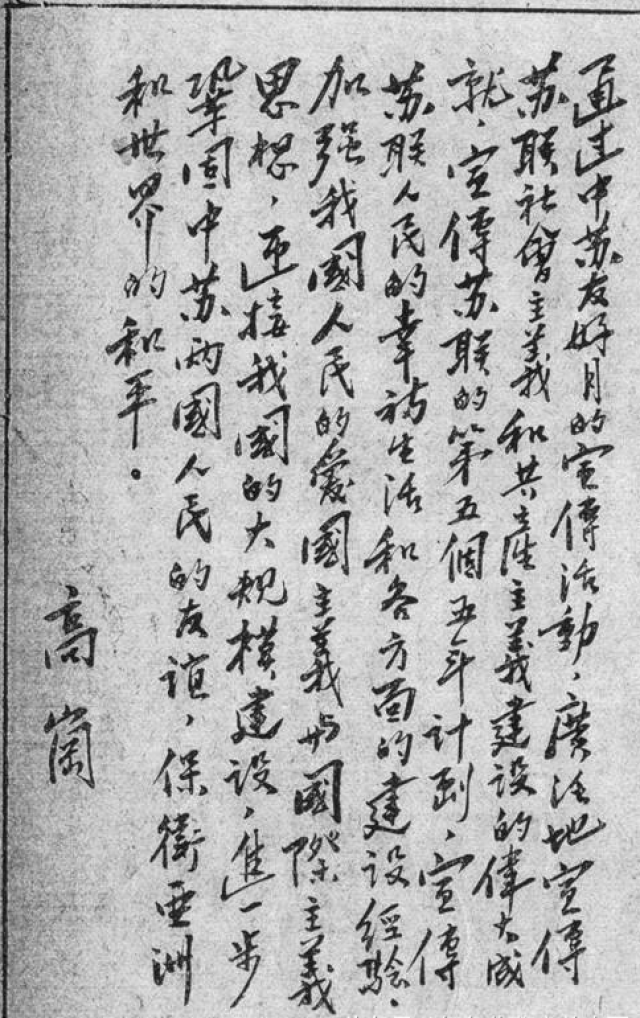 通过中苏友好月的宣傳活動，廣泛地宣傳
苏联社會主義和共產主義建設的偉大成
就，宣傳苏联的第五個五年计劃，宣傳
苏联人民的幸福生活和各方面的建設經驗，
加强我國人民的愛國主義与國際主義
思想，迎接我國的大規模建設，進一步
鞏固中苏兩國人民的友谊，保衛亞洲
和世界的和平。
高崗